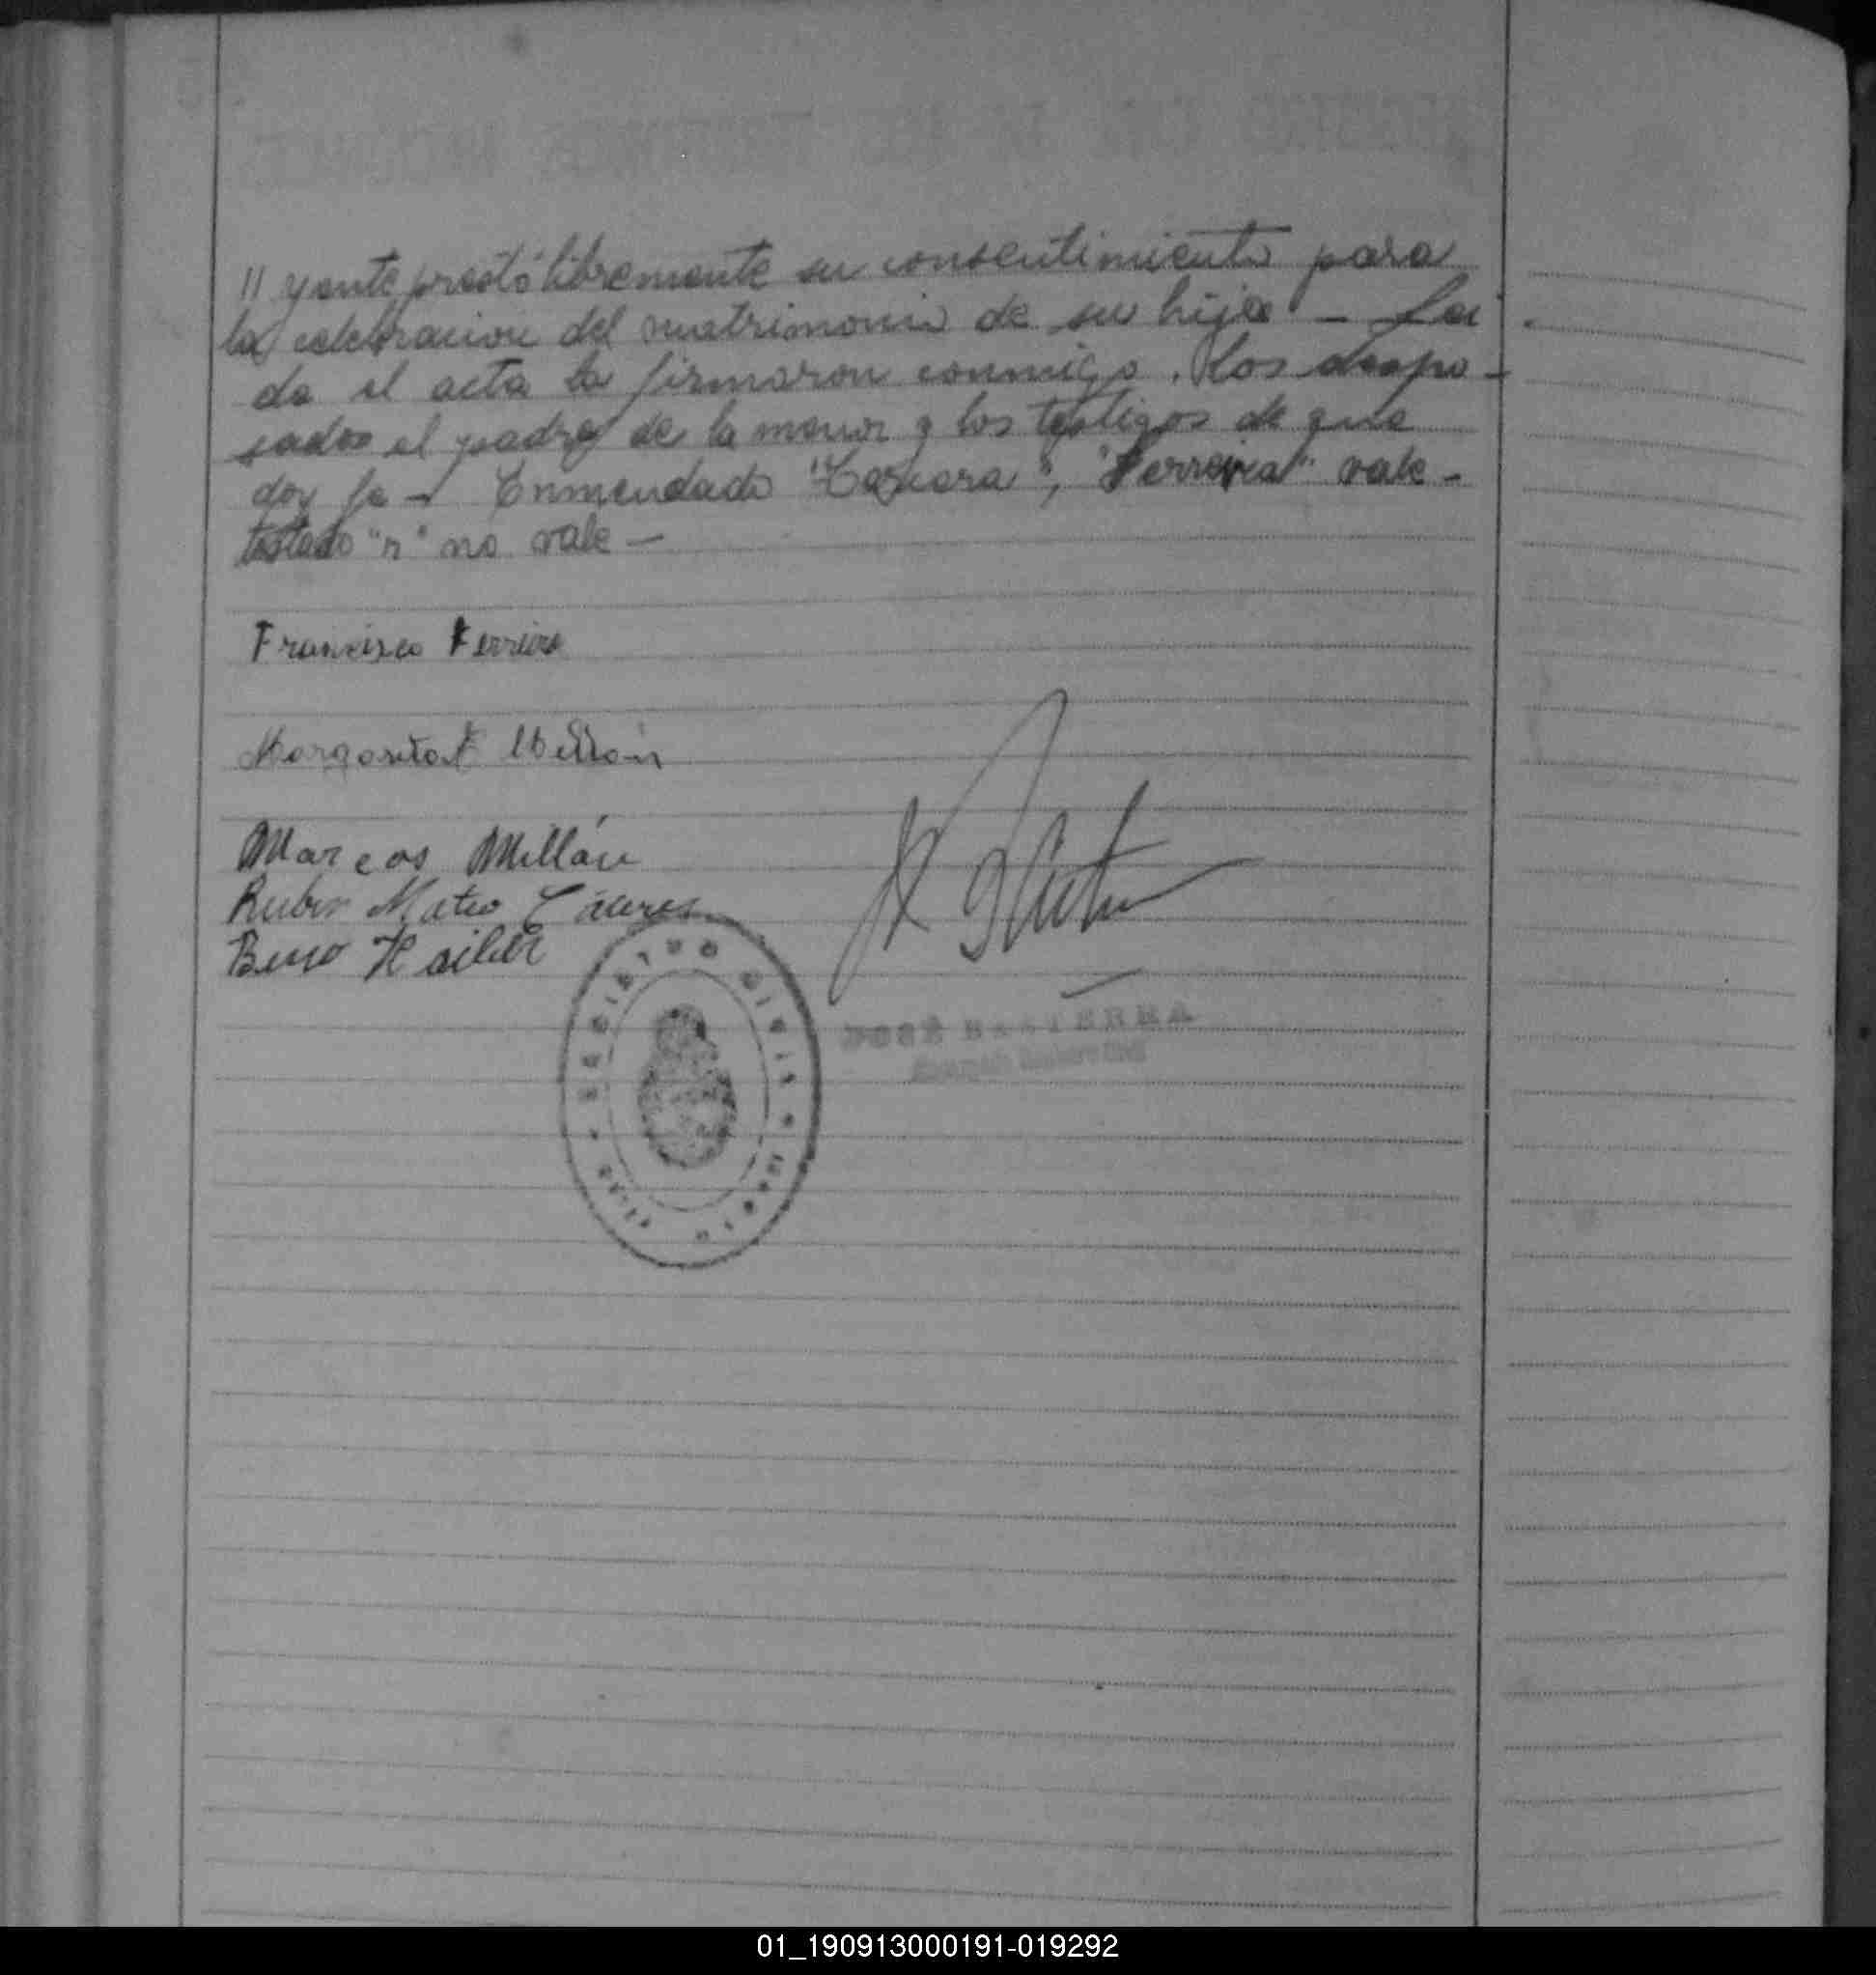 // yente prestó libremente su consentimiento para
la celebracion del matrimonio de su hija - Lei
da el acta la firmaron conmigo, los despo-
sados el padre de la menor y los testigos de que
doy fe - Enmendado " ", "Ferreira" vale -
testado "r" no vale -
Francisco Ferreira
Margarita F Millán
Marcos Millán
Ruben Mateo
Beno
REGISTRO CIVIL
JOSÉ
01_190913000191-019292